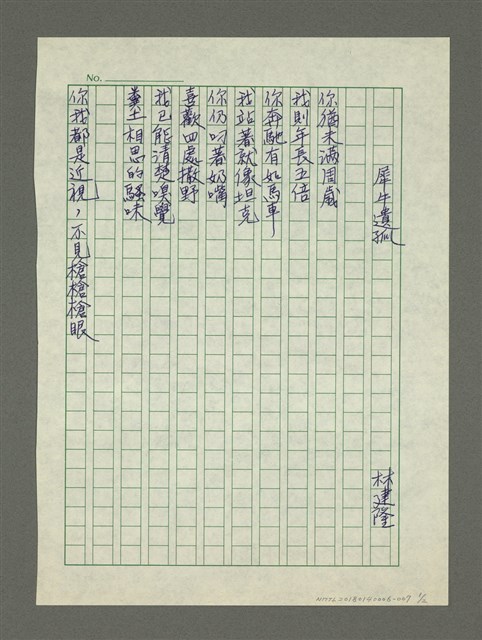 No.
犀牛遺孤
林建隆
你猶未滿周歲
我則年長五倍
你奔馳有如馬車，
我站著就像坦克
你仍叼著奶嘴
喜歡四處撒野
我已能清楚嗅覺
糞土相思的騷味
你我都是近視，不見槍槍槍眼